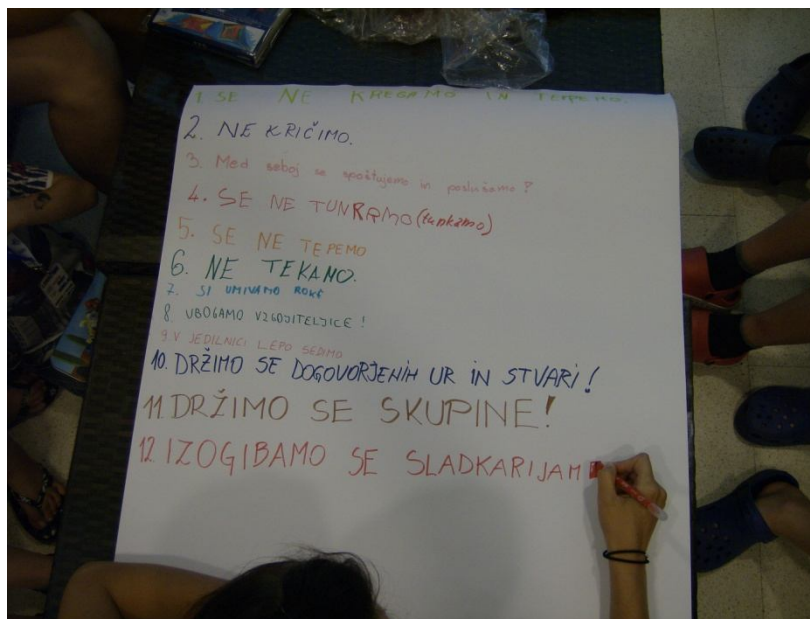 1. SE NE KREGAMO IN TEPEMO.
2. NE KRIČIMO.
3. Med seboj se spoštujemo in poslušamo!
4. SE NE TUNKAMO (tunkamo)
5. SE NE TEPEMO
6. NE TEKAMO.
7. SI UMIVAMO ROKE
8. UBOGAMO VZGOJITELJICE!
9. V JEDILNICI LEPO SEDIMO
10. DRŽIMO SE DOGOVORJENIH UR IN STVARI!
11. DRŽIMO SE SKUPINE!
12. IZOGIBAMO SE SLADKARIJAM